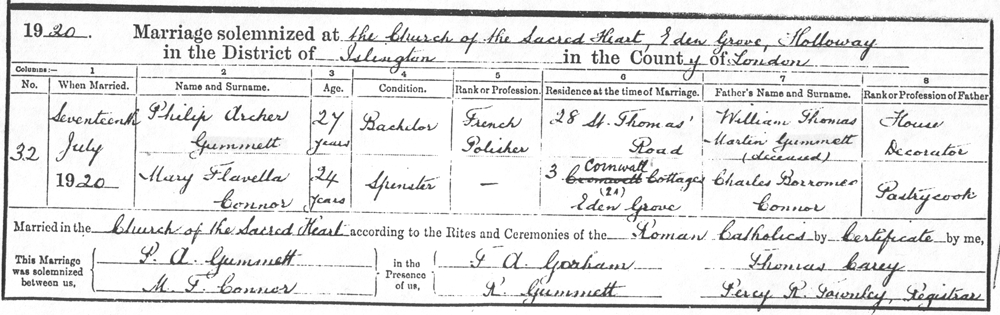 1920. Marriage solemnized at the Church of the Sacred Heart, Eden Grove, Holloway
in the District of Islington in the County of London
Columns:— 1 2 3 4 5 6 7 8
No. When Married. Name and Surname. Age. Condition. Rank or Profession. Residence at the time of Marriage. Father's Name and Surname. Rank or Profession of Father
32 Seventeenth July 1920
Philip Archer Gummett 27 years Bachelor French Polisher 28 St. Thomas' Road William Thomas Martin Gummett (deceased) House Decorator
Mary Flavella Connor 24 years Spinster — 3 Cornwall Cromwell Cottages (21) Eden Grove Charles Borromeo Connor Pastrycook
Married in the Church of the Sacred Heart according to the Rites and Ceremonies of the Roman Catholics by Certificate by me,
This Marriage was solemnized between us, P. A. Gummett in the Presence of us, F A Gorham Thomas Carey
M. F. Connor R Gummett Percy R. Townley, Registrar